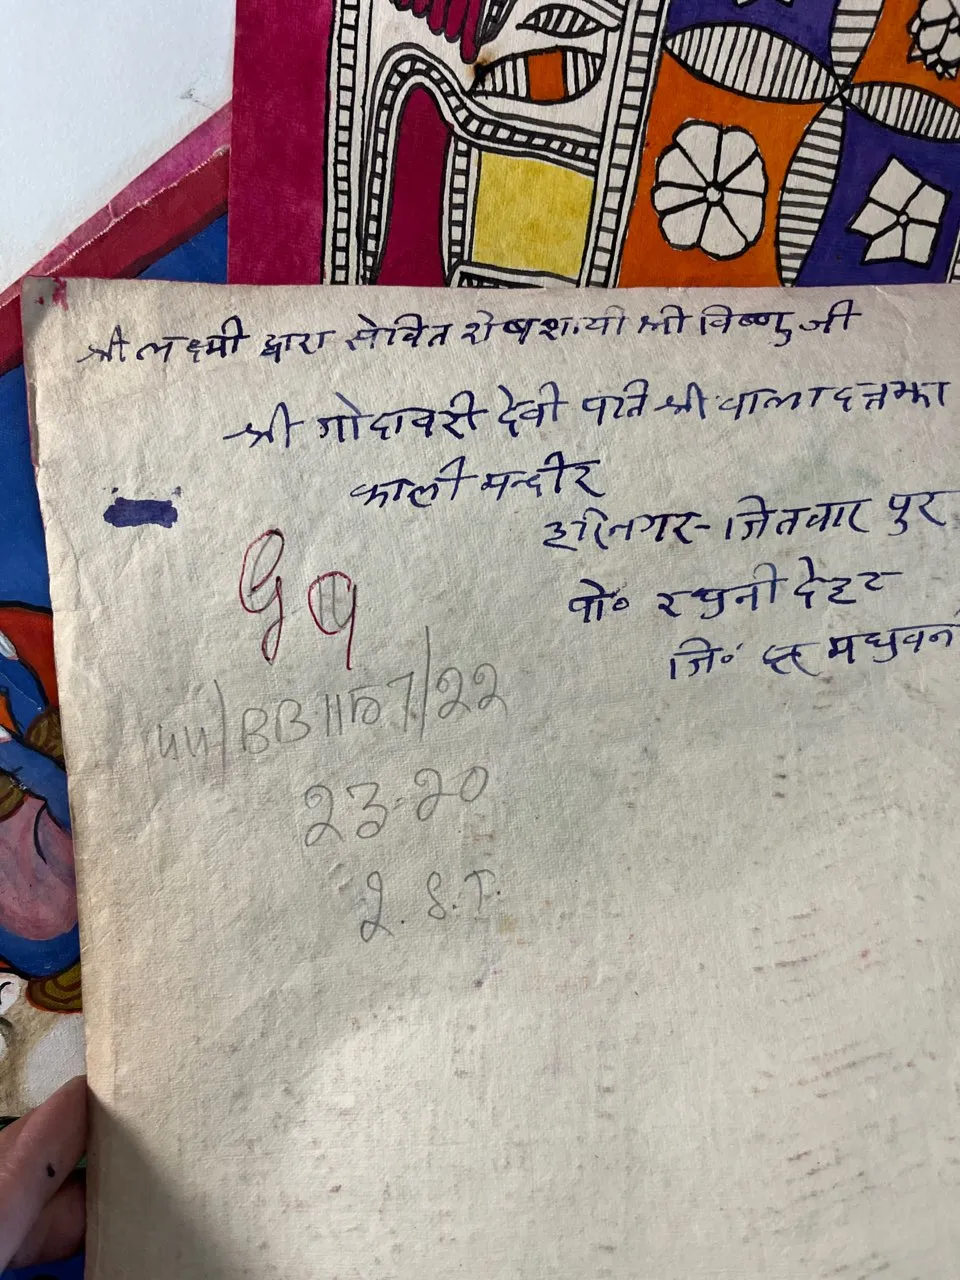 श्री लक्ष्मी द्वारा सेवित शेषशायी श्री विष्णु जी
श्री गोदावरी देवी पति श्री बाला दत्त झा
काली मन्दीर
हरिनगर-जितवार पुर
पो० रघुनी देहट
जि० मधुवन
G
/22
23-20
2. S.T.